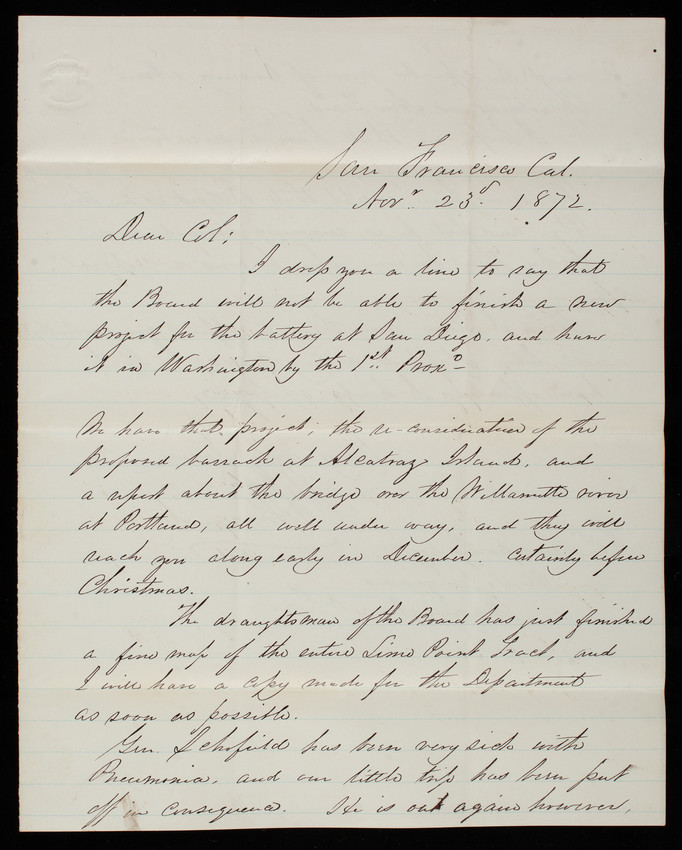 San Francisco Cal.
Novr. 23d. 1872.
Dear Col;
I drop you a line to say that
the Board will not be able to finish a new
project for the battery at San Diego, and have
it in Washington by the 1st. Proxo—
We have that project, the re-consideration of the
proposed barrack at Alcatraz Island, and
a report about the bridge over the Willamette river
at Portland, all well under way, and they will
reach you along early in December. certainly before
Christmas.
The draughtsman of the Board has just finished
a fine map of the entire Lime Point Tract, and
I will have a copy made for the Department
as soon as possible.
Gen. Schofield has been very sick with
Pneumonia, and our little trip has been put
off in consequence. He is out again however,